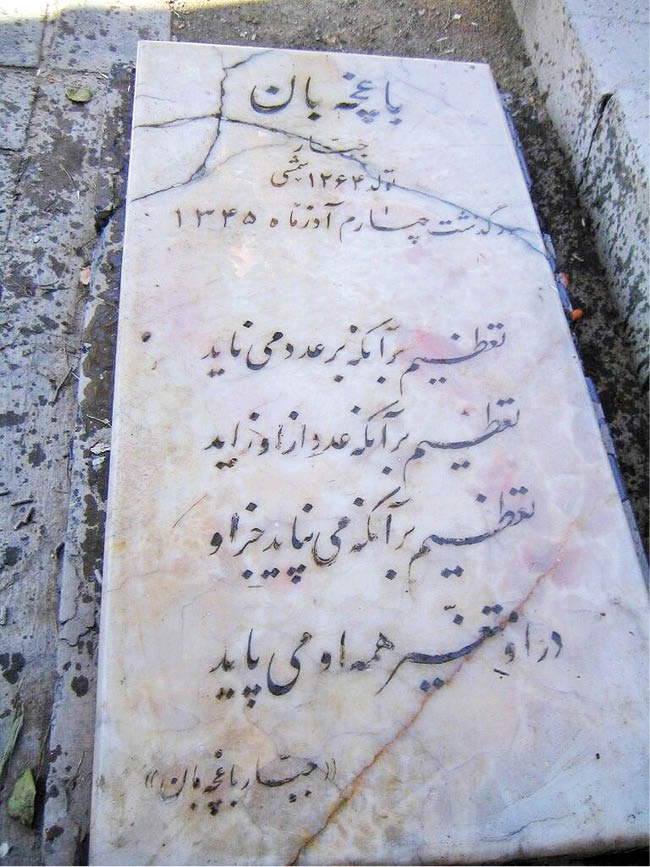 باغچه بان
جبّار
تولد ۱۲۶۴ شمسی
درگذشت چهارم آذرماه ۱۳۴۵
تعظیم بر آنکه بر عدد می ناید
تعظیم بر آنکه عدد از او زاید
تعظیم بر آنکه می نپاید جز او
در او متغیّر همه او می پاید
«جبّار باغچه بان»